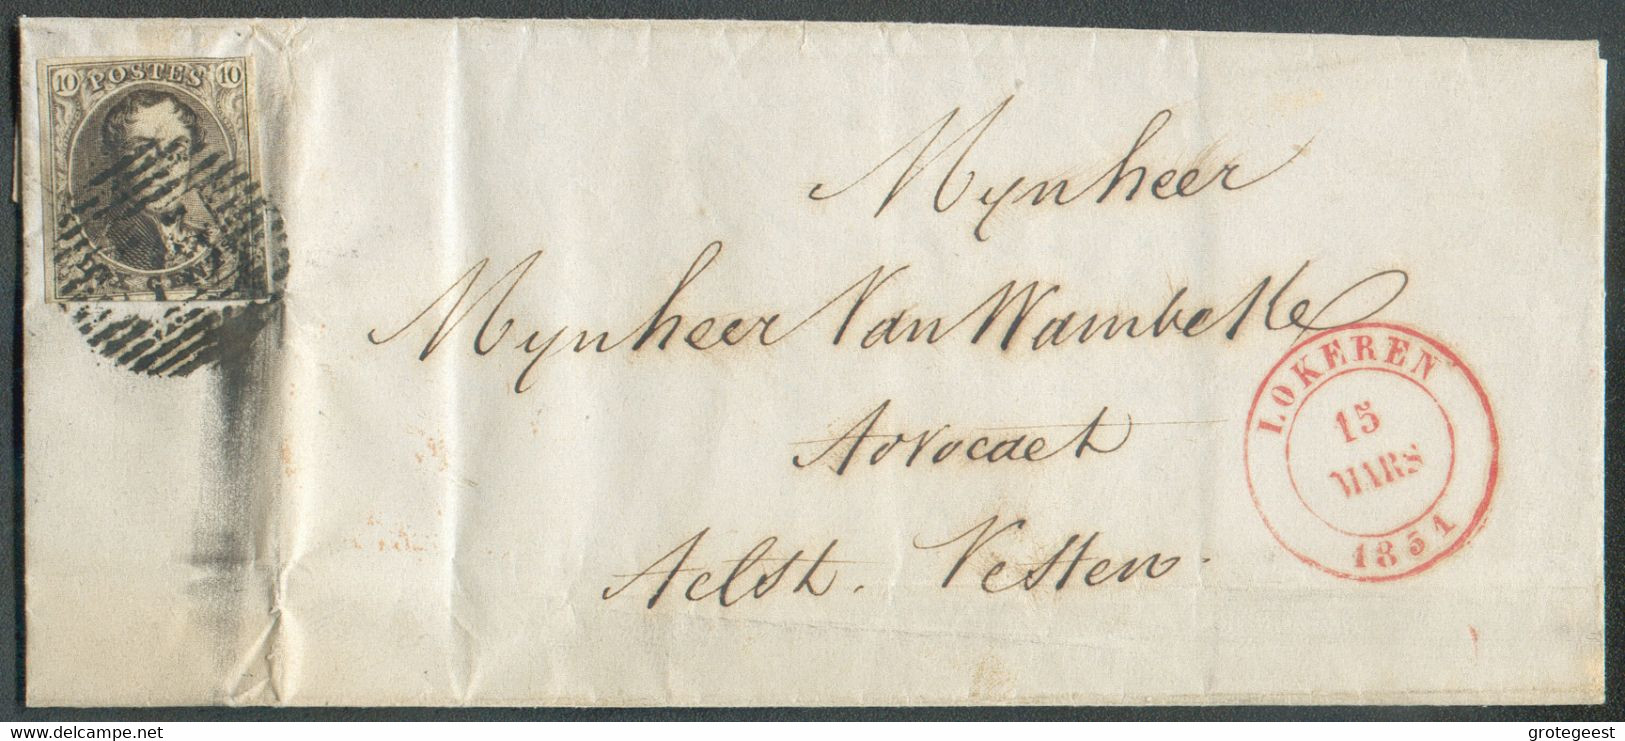 10 POSTES 10
Mynheer
Mynheer Van Wambekke
Advocaet
Aelst. Vesten.
LOKEREN
15
MARS
1851
delcampe.net
grotegeest